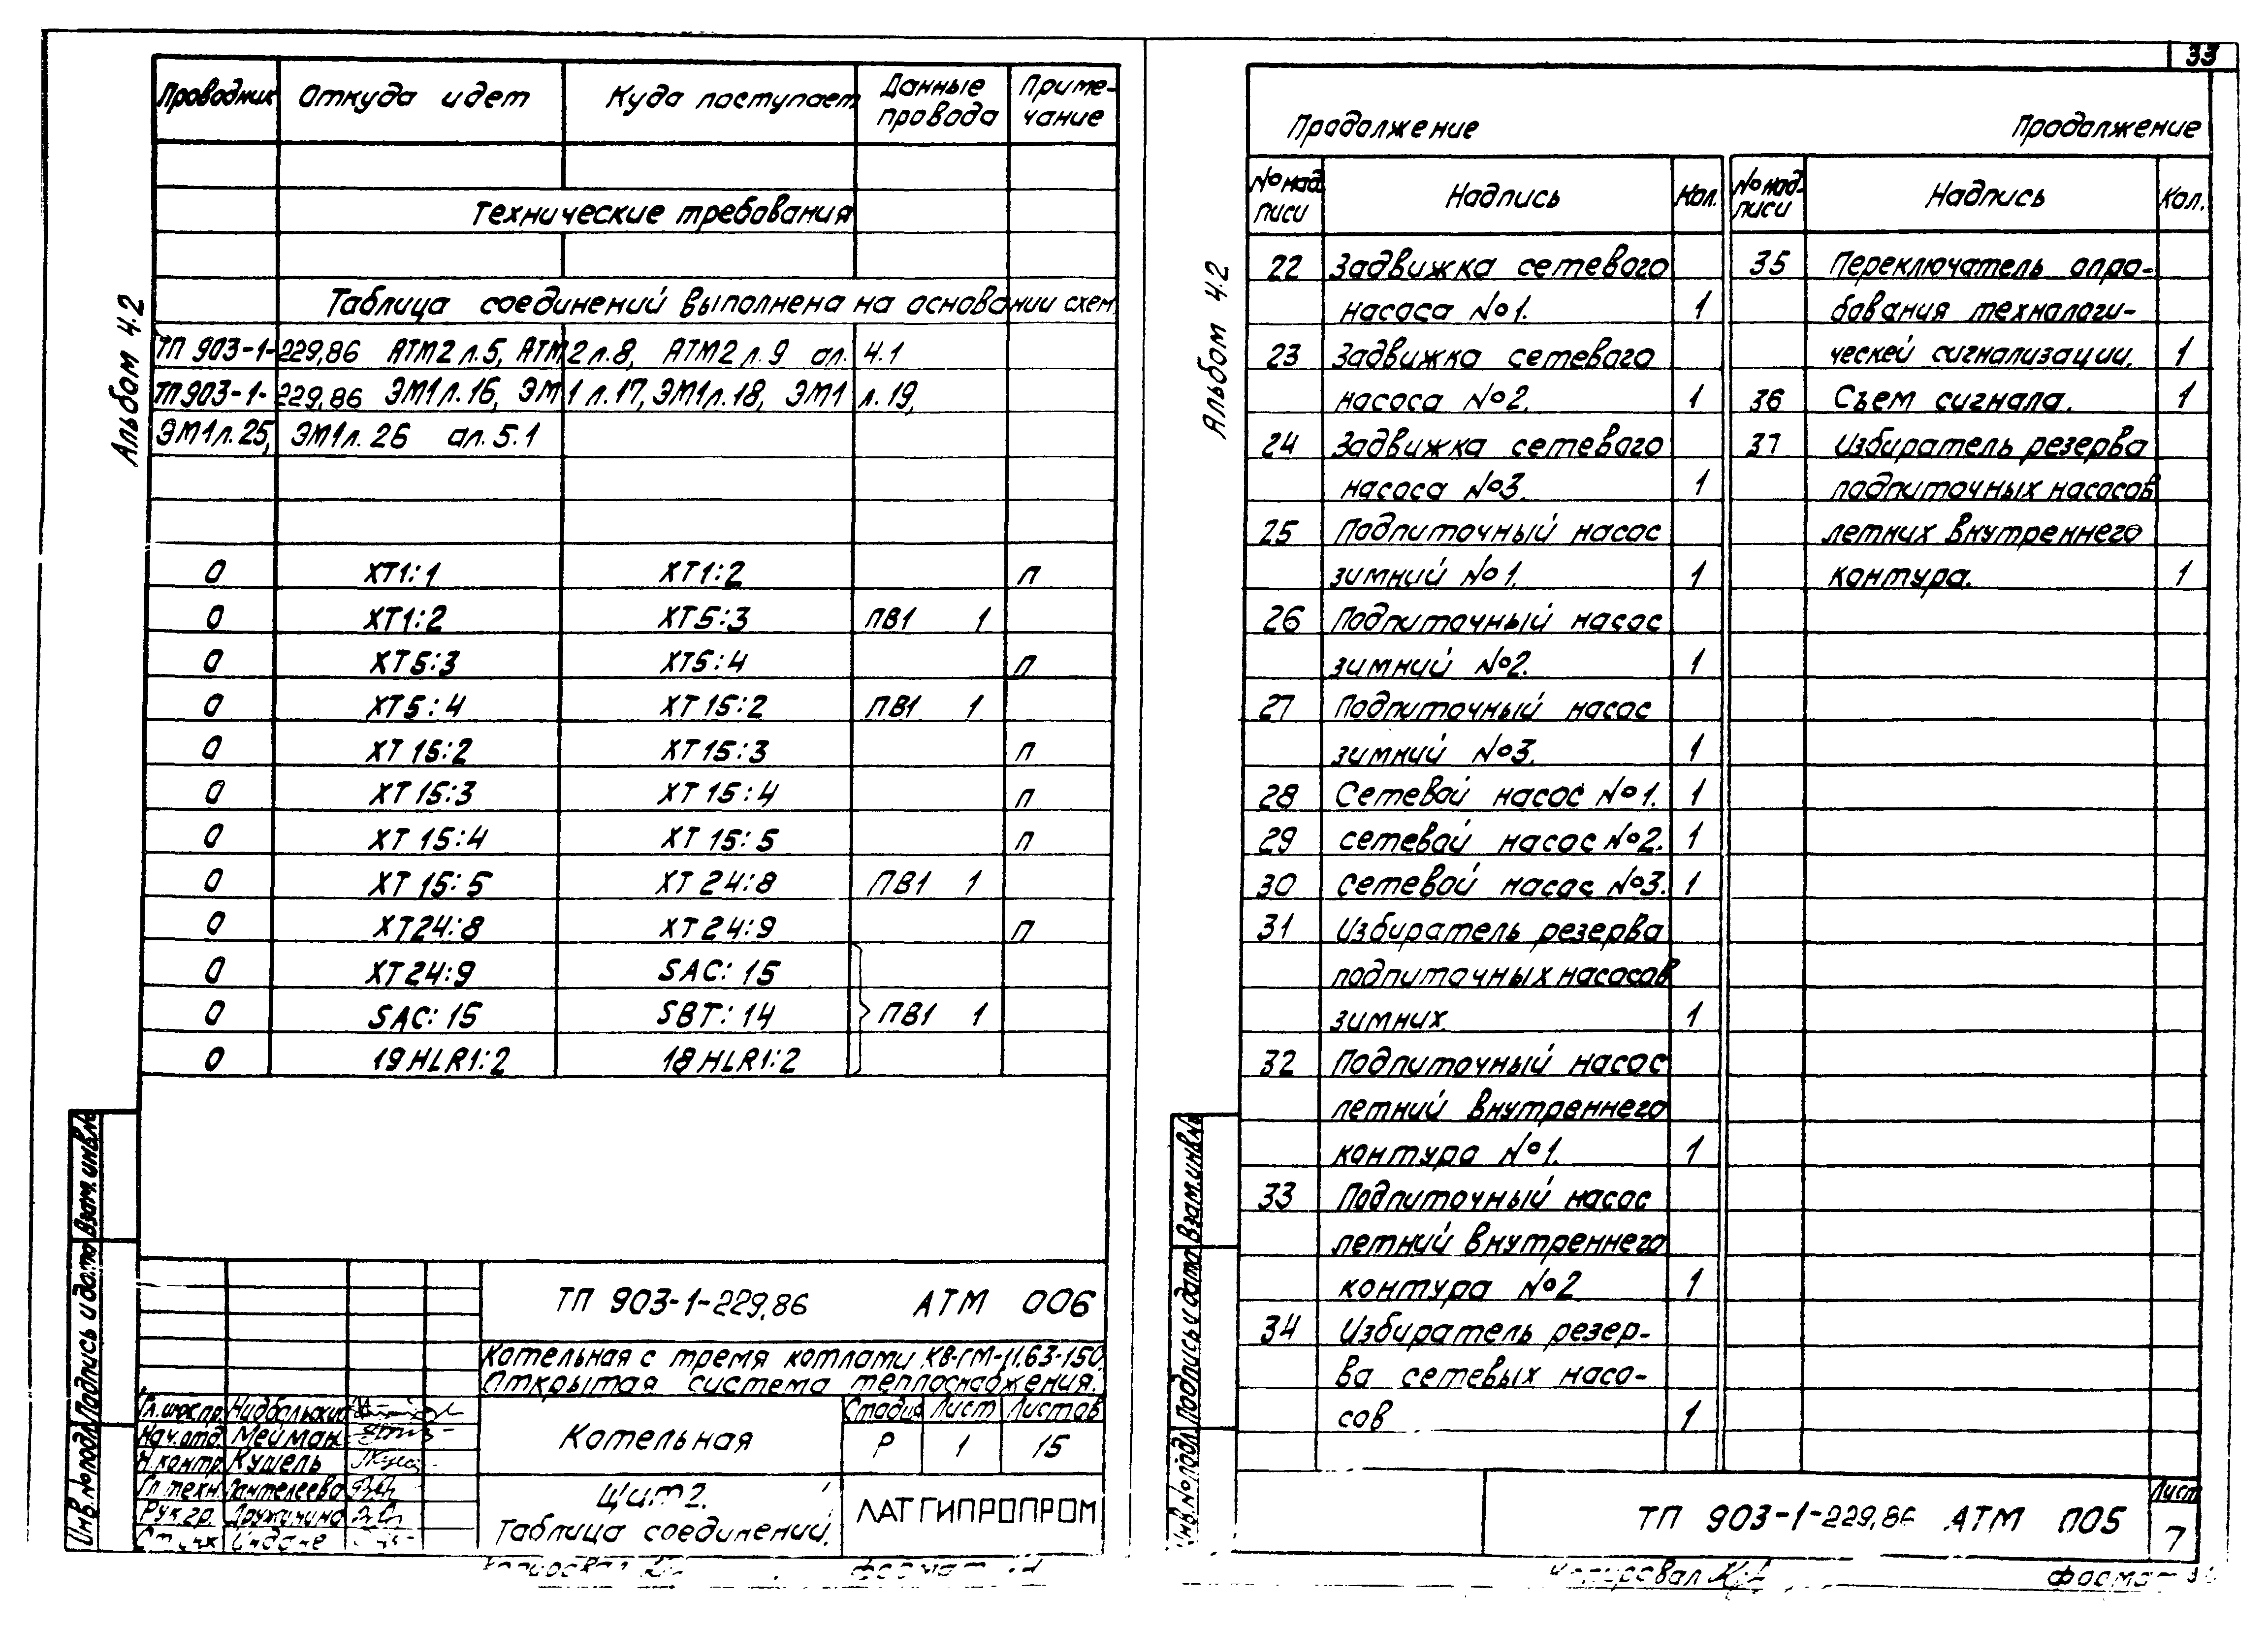 33
Альбом 4.2
Проводник Откуда идет Куда поступает Данные провода Приме-чание
Технические требования
Таблица соединений выполнена на основании схем
ТП 903-1-229,86 АТМ2 л.5, АТМ2 л.8, АТМ2 л.9 ал. 4.1
ТП 903-1-229,86 ЭМ1 л.16, ЭМ1 л.17, ЭМ1 л.18, ЭМ1 л.19,
ЭМ1 л.25, ЭМ1 л.26 ал. 5.1
0 ХТ1:1 ХТ1:2 п
0 ХТ1:2 ХТ5:3 ПВ1 1
0 ХТ5:3 ХТ5:4 п
0 ХТ5:4 ХТ15:2 ПВ1 1
0 ХТ15:2 ХТ15:3 п
0 ХТ15:3 ХТ15:4 п
0 ХТ15:4 ХТ15:5 п
0 ХТ15:5 ХТ24:8 ПВ1 1
0 ХТ24:8 ХТ24:9 п
0 ХТ24:9 SAC:15
0 SAC:15 SBT:14 ПВ1 1
0 19HLR1:2 18HLR1:2
ТП 903-1-229,86 АТМ 006
Котельная с тремя котлами КВ-ГМ-11,63-150.
Открытая система теплоснабжения.
Котельная
Стадия Лист Листов
Р 1 15
Щит 2.
Таблица соединений.
ЛАТГИПРОПРОМ
Нач.отд. Мейман
Н.контр. Кушель
Гл.техн. Пантелеева
Рук.гр. Дружинина
Инв.№подл. Подпись и дата Взам.инв.№
Альбом 4.2
Продолжение Продолжение
№ над-писи Надпись Кол. № над-писи Надпись Кол.
22 Задвижка сетевого
насоса №1. 1
23 Задвижка сетевого
насоса №2. 1
24 Задвижка сетевого
насоса №3. 1
25 Подпиточный насос
зимний №1. 1
26 Подпиточный насос
зимний №2. 1
27 Подпиточный насос
зимний №3. 1
28 Сетевой насос №1. 1
29 сетевой насос №2. 1
30 сетевой насос №3. 1
31 Избиратель резерва
подпиточных насосов
зимних. 1
32 Подпиточный насос
летний внутреннего
контура №1. 1
33 Подпиточный насос
летний внутреннего
контура №2 1
34 Избиратель резер-
ва сетевых насо-
сов 1
35 Переключатель опро-
бования технологи-
ческой сигнализации. 1
36 Съем сигнала. 1
37 Избиратель резерва
подпиточных насосов
летних внутреннего
контура. 1
ТП 903-1-229,86 АТМ П05
Лист
7
Инв.№подл. Подпись и дата Взам.инв.№
Копировал
Формат